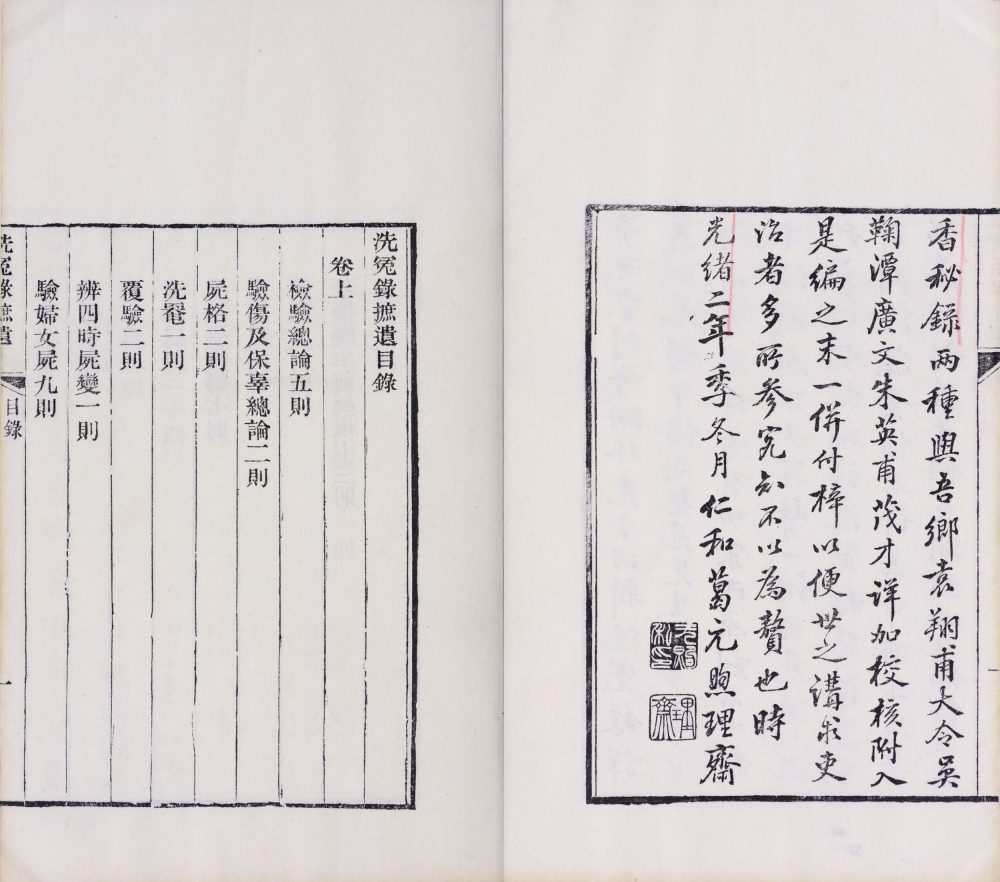 香秘録兩種與吾鄉袁翔甫大令吳
鞠潭廣文朱英甫茂才详加校核附入
是编之末一併付梓以便世之講求吏
治者多所參究知不以為贅也時
光緒二年季冬月仁和葛元煦理齋
元煦
私印
理
齋
洗冤錄摭遺目錄
卷上
檢驗總論五則
驗傷及保辜總論二則
屍格二則
洗罨一則
覆驗二則
辨四時屍變一則
驗婦女屍九則
洗冤錄摭遺
目錄
一